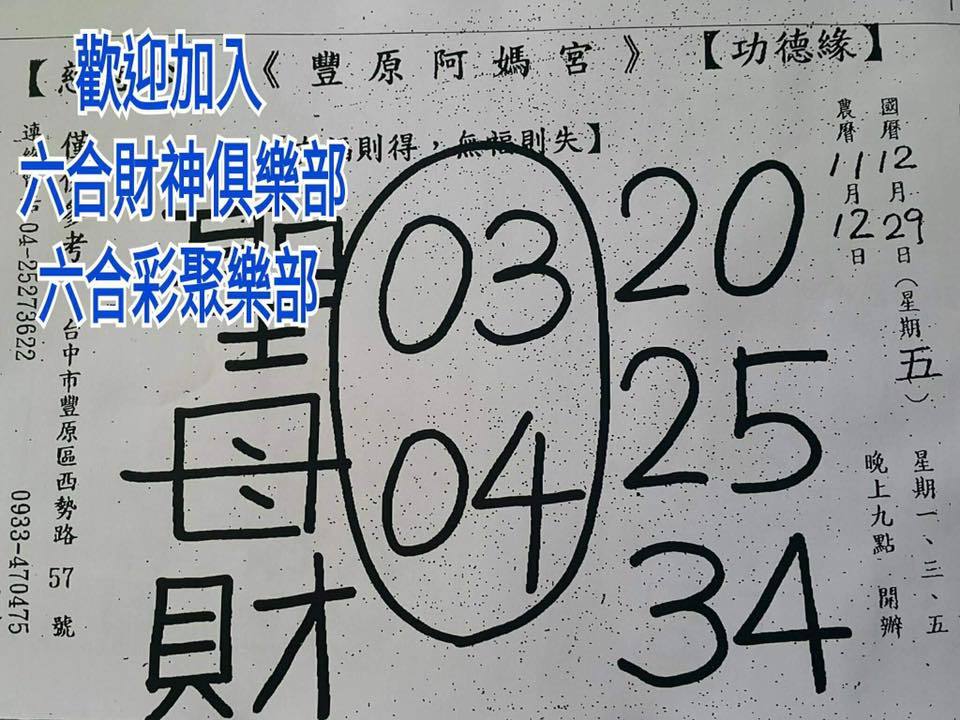 歡迎加入
六合財神俱樂部
六合彩聚樂部
《豐原阿媽宮》
【功德緣】
福則得，無福則失】
國曆12月29日（星期五）
農曆11月12日
星期一、三、五、
晚上九點 開辦
03 20
04 25
34
聖母財
考
台中市豐原區西勢路 57 號
04-25273622
0933-470475